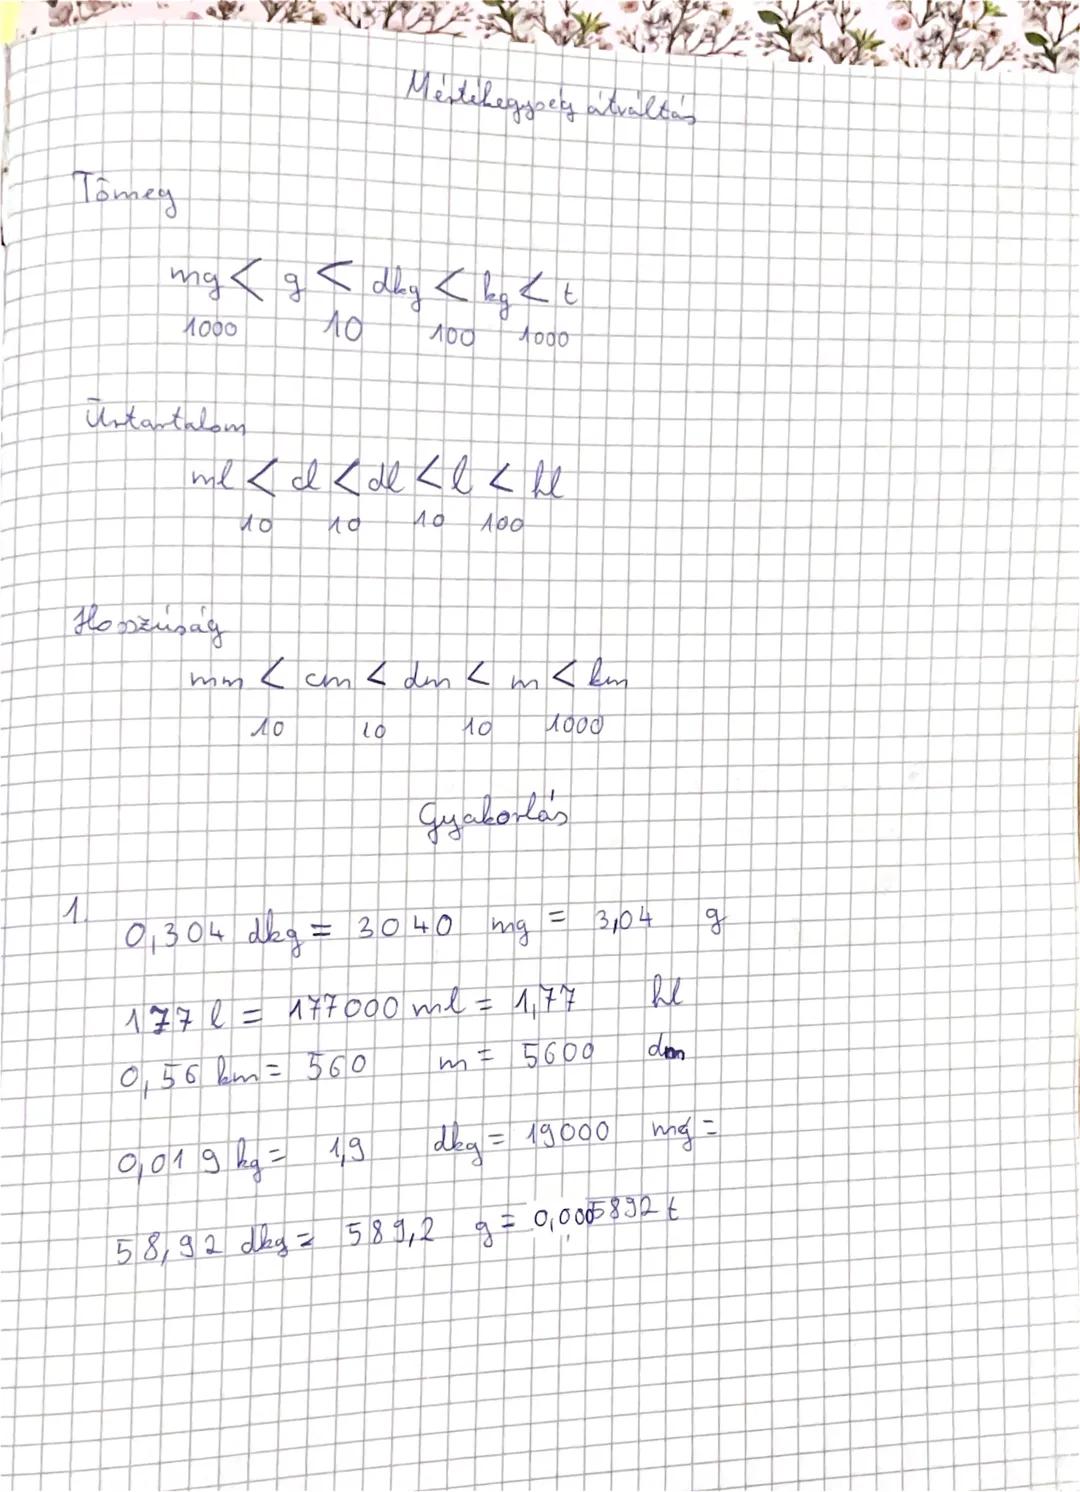 Mértékegység átváltás
Tömeg
mg < g < dkg < kg < t
1000 10 100 1000
Űrtartalom
ml < cl < dl < l < hl
10 10 10 100
Hosszúság
mm < cm < dm < m < km
10 10 10 1000
Gyakorlás
1. 0,304 dkg = 3040 mg = 3,04 g
177 l = 177000 ml = 1,77 hl
0,56 km = 560 m = 5600 dm
0,019 kg = 1,9 dkg = 19000 mg =
58,92 dkg = 589,2 g = 0,0005892 t